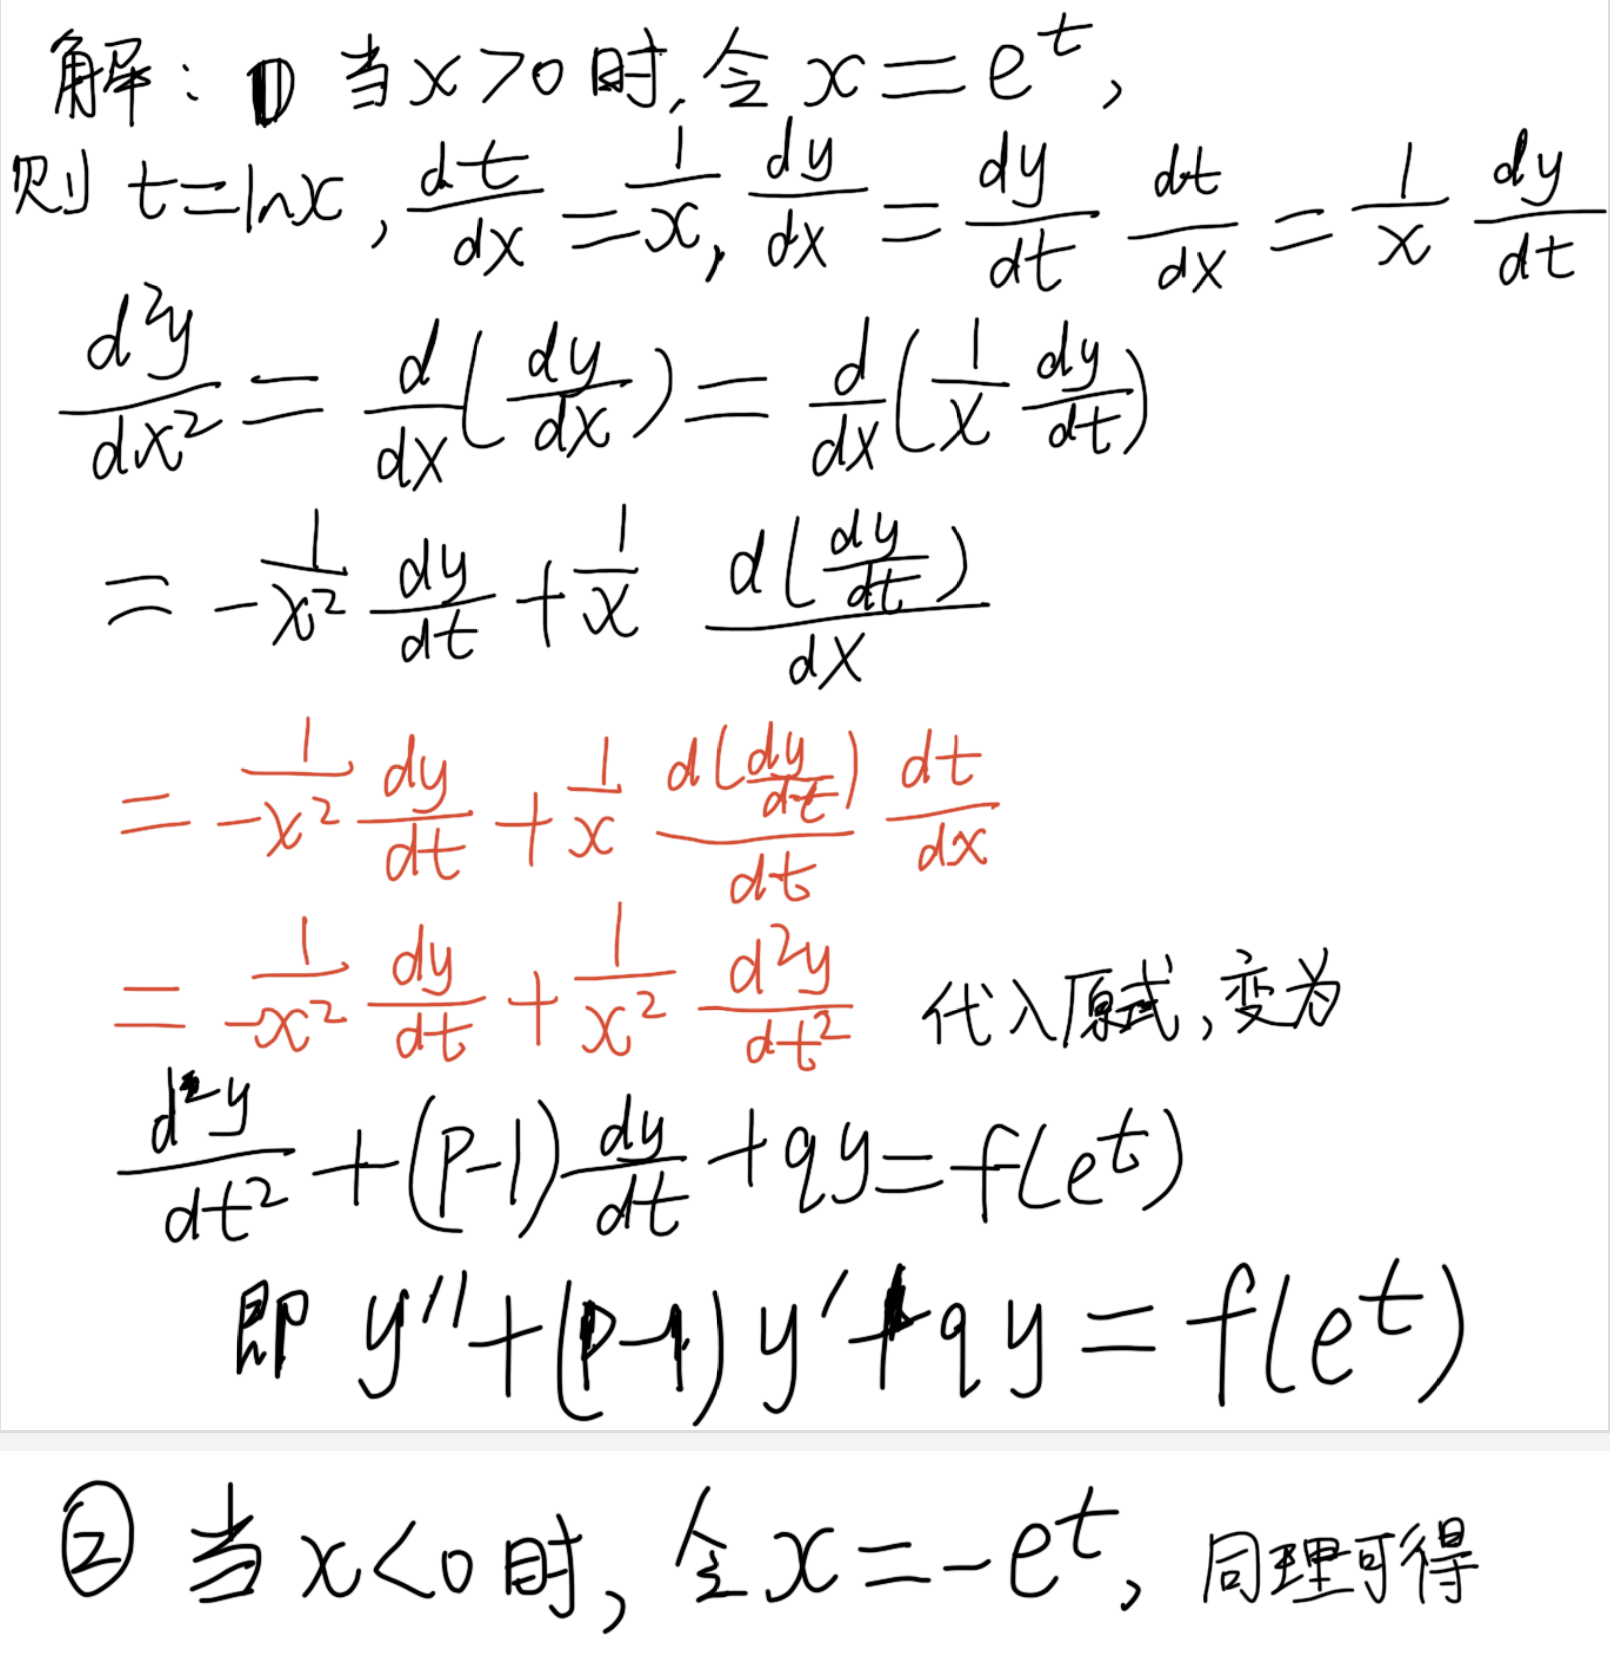 解：① 当x>0时，令 x=e^t，
则 t=lnx，dt/dx=1/x，dy/dx=dy/dt dt/dx=1/x dy/dt
d²y/dx²=d/dx(dy/dx)=d/dx(1/x dy/dt)
=-1/x² dy/dt+1/x d(dy/dt)/dx
=1/-x² dy/dt+1/x d(dy/dt)/dt dt/dx
=1/-x² dy/dt+1/x² d²y/dt² 代入原式，变为
d²y/dt²+(p-1)dy/dt+qy=f(e^t)
即 y''+(p-1)y'+qy=f(e^t)
② 当x<0时，令x=-e^t，同理可得